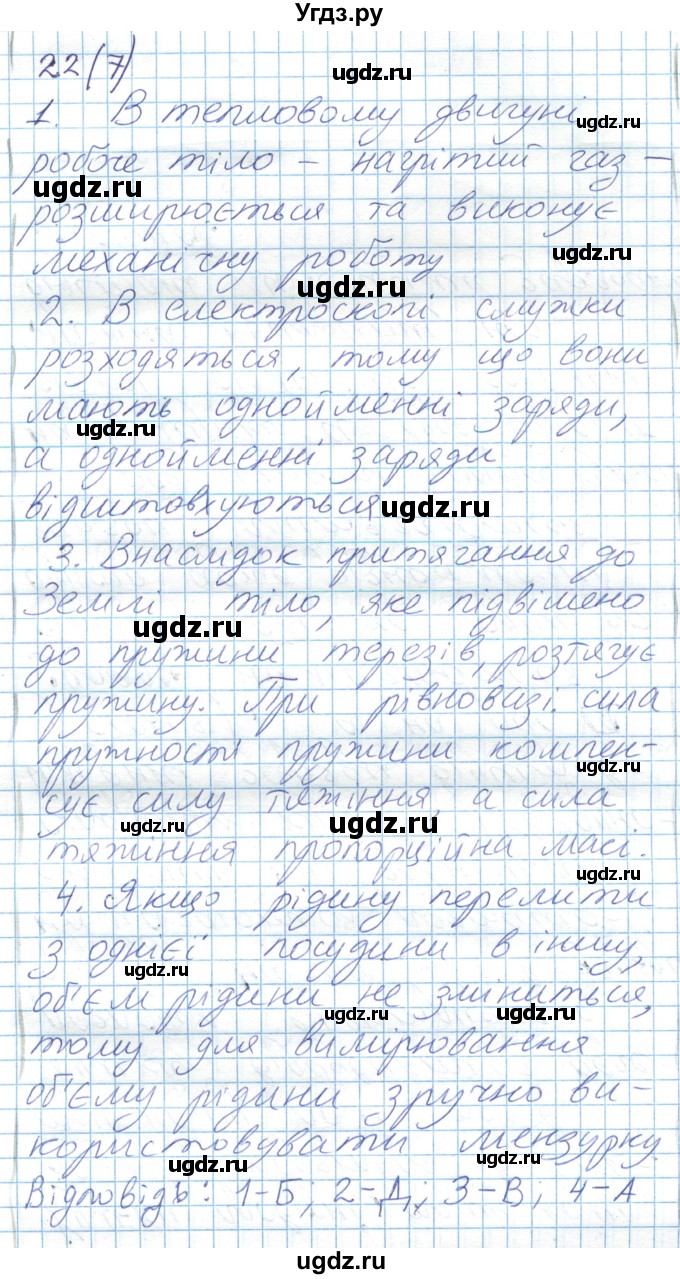 Угдз.ру
22(7)
ugdz.ru
1. В тепловому двигуні
ugdz.ru
робоче тіло – нагрітий газ –
ugdz.ru
розширюється та виконує
ugdz.ru
механічну роботу
ugdz.ru
2. В електроскопі смужки
розходяться, тому що вони
мають однойменні заряди,
ugdz.ru
а однойменні заряди
відштовхуються
ugdz.ru
3. Внаслідок притягання до
Землі тіло, яке підвішено
ugdz.ru
до пружини терезів, розтягує
пружину. При рівновазі сила
пружності пружини компен-
ugdz.ru
сує силу тяжіння, а сила
ugdz.ru
ugdz.ru
тяжіння пропорційна масі.
ugdz.ru
4. Якщо рідину перелити
з однієї посудини в іншу,
ugdz.ru
об'єм рідини не зміниться,
ugdz.ru
ugdz.ru
тому для вимірювання
об'єму рідини зручно ви-
ugdz.ru
користовувати мензурку
ugdz.ru
ugdz.ru
Відповідь: 1-Б; 2-Д; 3-В; 4-А
ugdz.ru